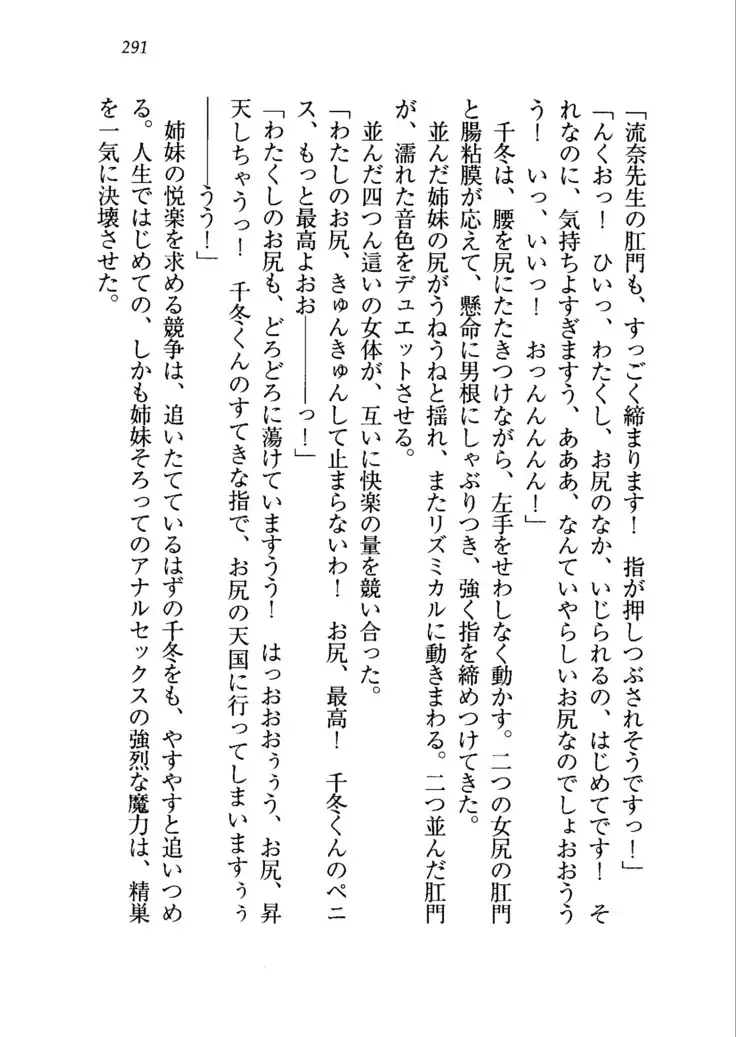 291
「流奈先生の肛門も、すっごく締まります！　指が押しつぶされそうですっ！」
「んくおっ！　ひいっ、わたくし、お尻のなか、いじられるの、はじめてです！　そ
れなのに、気持ちよすぎますう、あああ、なんていやらしいお尻なのでしょおおうう
う！　いっ、いいっ！　おっんんんんん！」
　千冬は、腰を尻にたたきつけながら、左手をせわしなく動かす。二つの女尻の肛門
と腸粘膜が応えて、懸命に男根にしゃぶりつき、強く指を締めつけてきた。
　並んだ姉妹の尻がうねうねと揺れ、またリズミカルに動きまわる。二つ並んだ肛門
が、濡れた音色をデュエットさせる。
　並んだ四つん這いの女体が、互いに快楽の量を競い合った。
「わたしのお尻、きゅんきゅんして止まらないわ！　お尻、最高！　千冬くんのペニ
ス、もっと最高よおお――――っ！」
「わたくしのお尻も、どろどろに蕩けていますうう！　はっおおおぅぅう、お尻、昇
天しちゃうっ！　千冬くんのすてきな指で、お尻の天国に行ってしまいますぅぅ
――――うう！」
　姉妹の悦楽を求める競争は、追いたてているはずの千冬をも、やすやすと追いつめ
る。人生ではじめての、しかも姉妹そろってのアナルセックスの強烈な魔力は、精巣
を一気に決壊させた。